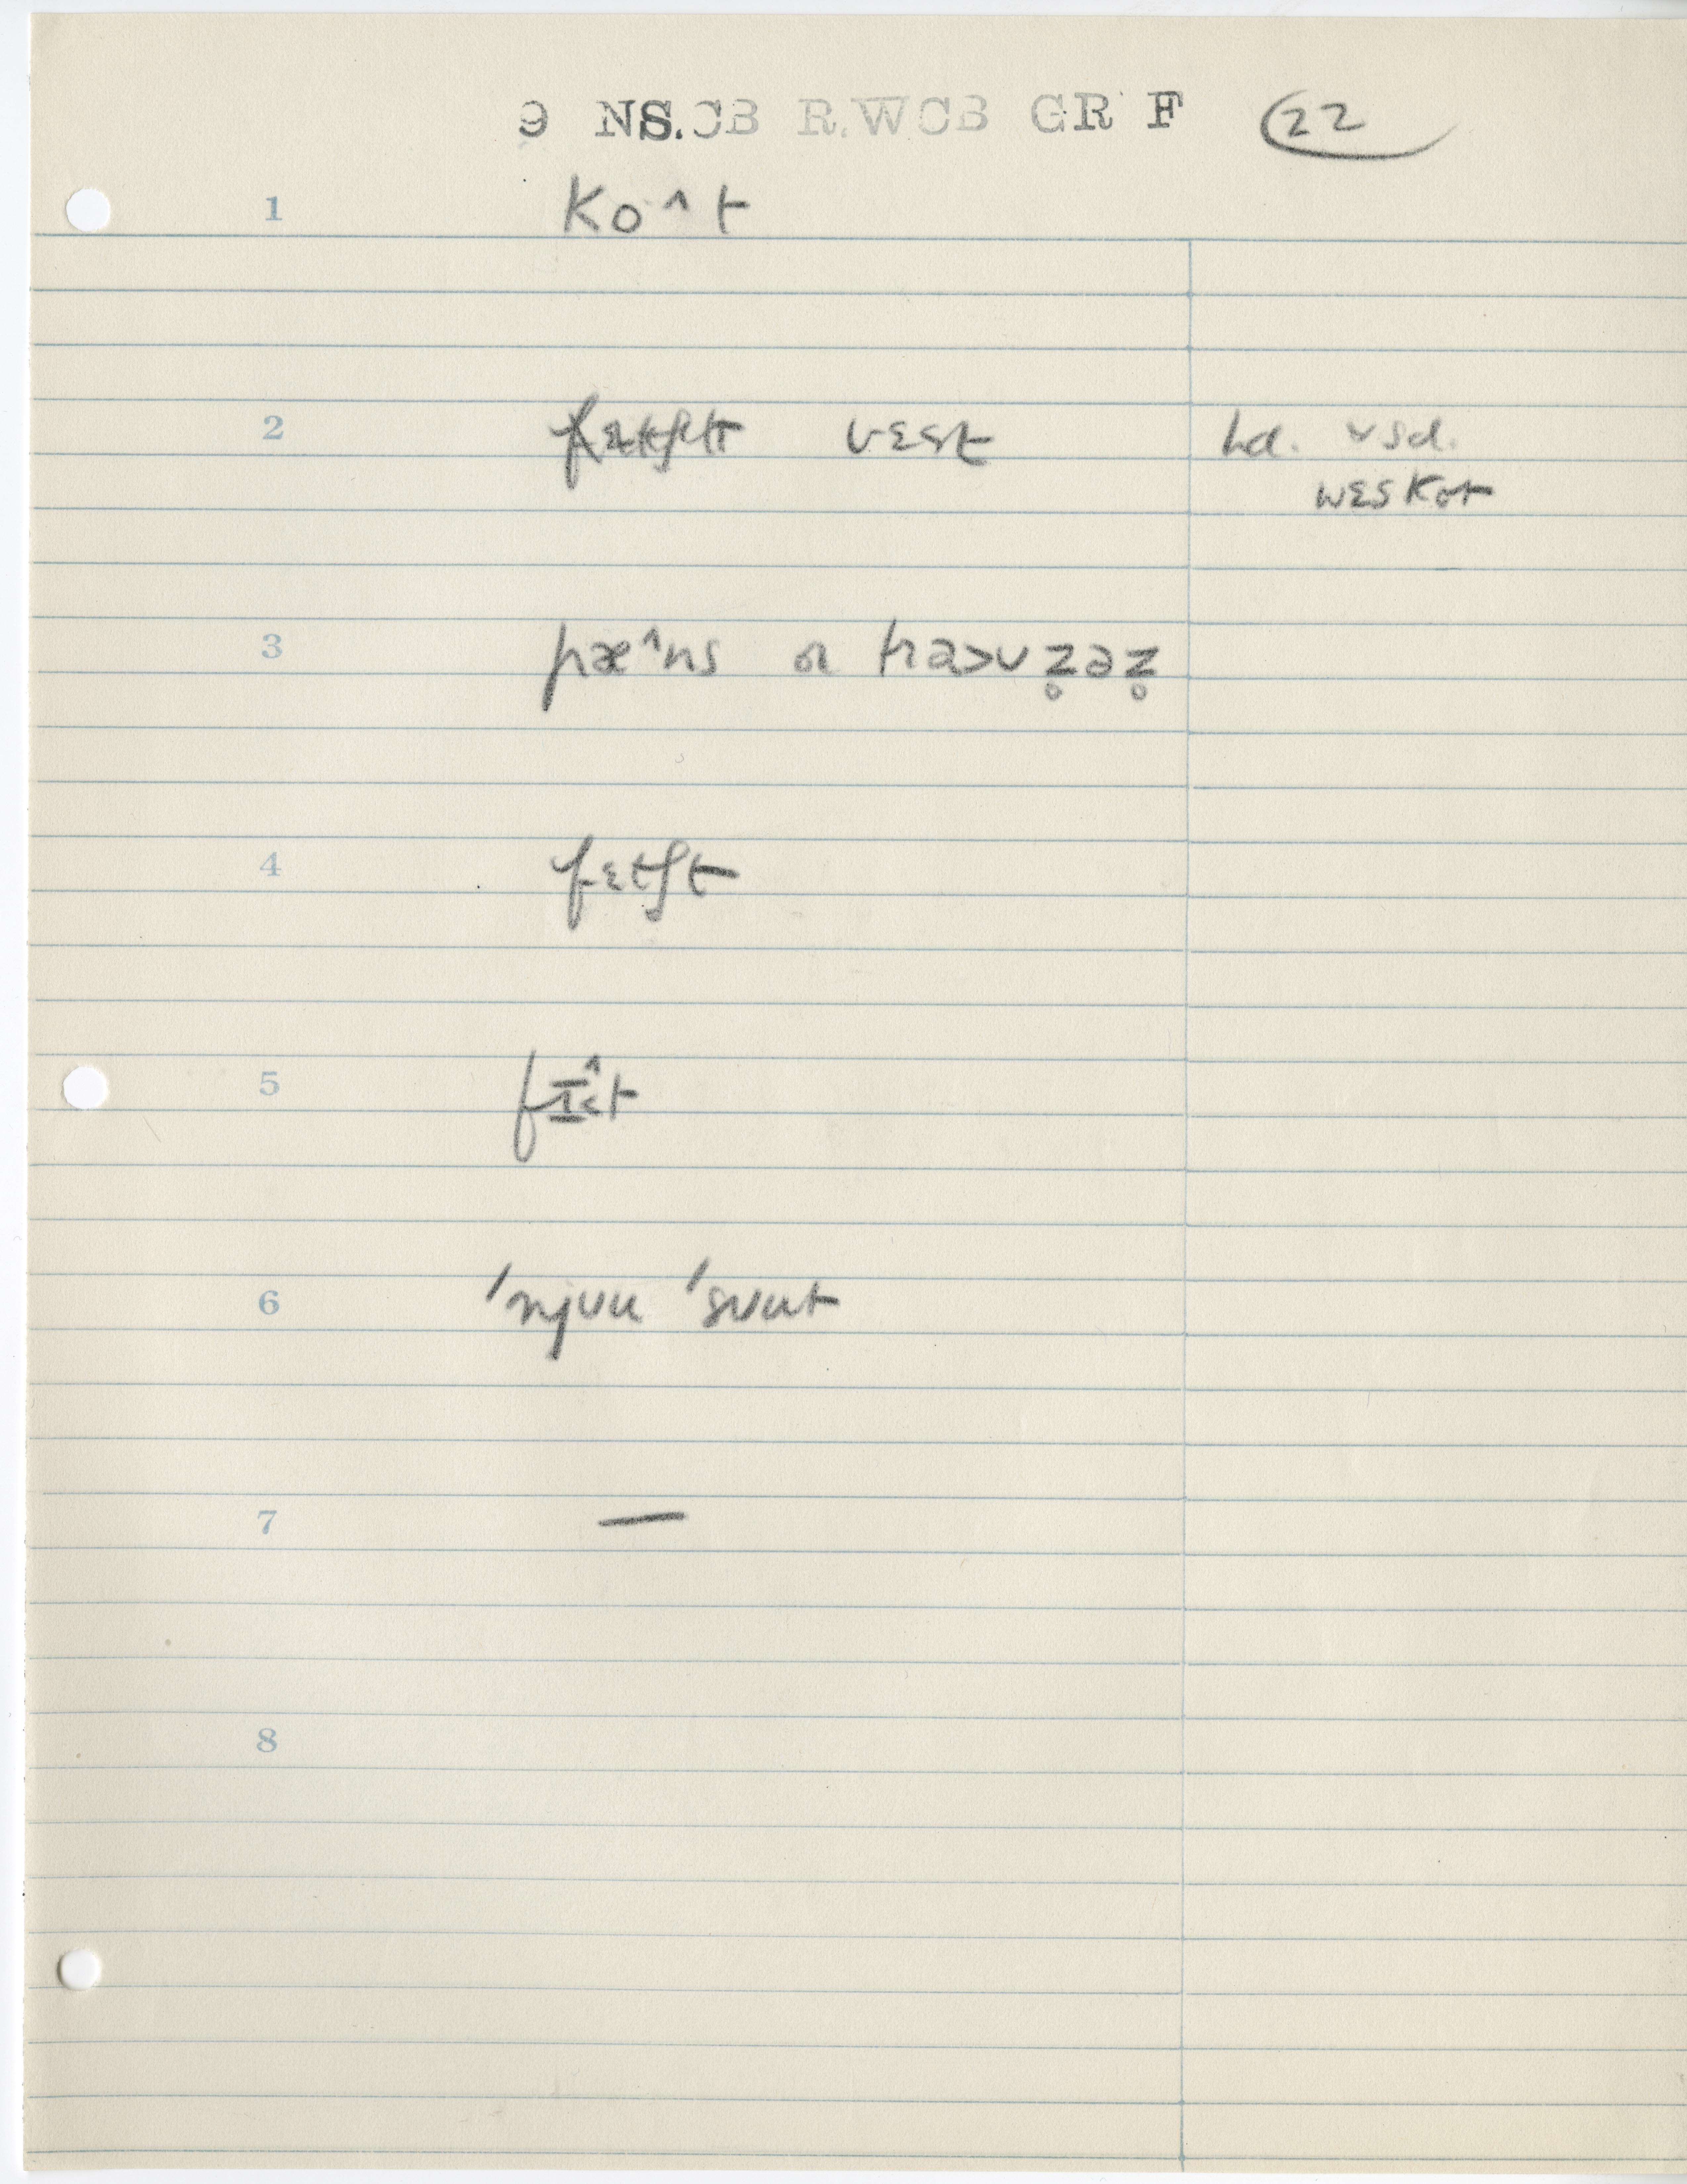 9 NS.CB R.WCB GR F 22
1 ko^t
2 fɛtʃt vɛst hd. usd.
wɛskət
3 pæ^ns or tra>ʊz̥əz̥
4 fɛtʃt
5 fɪ^<t
6 'njʊu 'sʊut
7 —
8